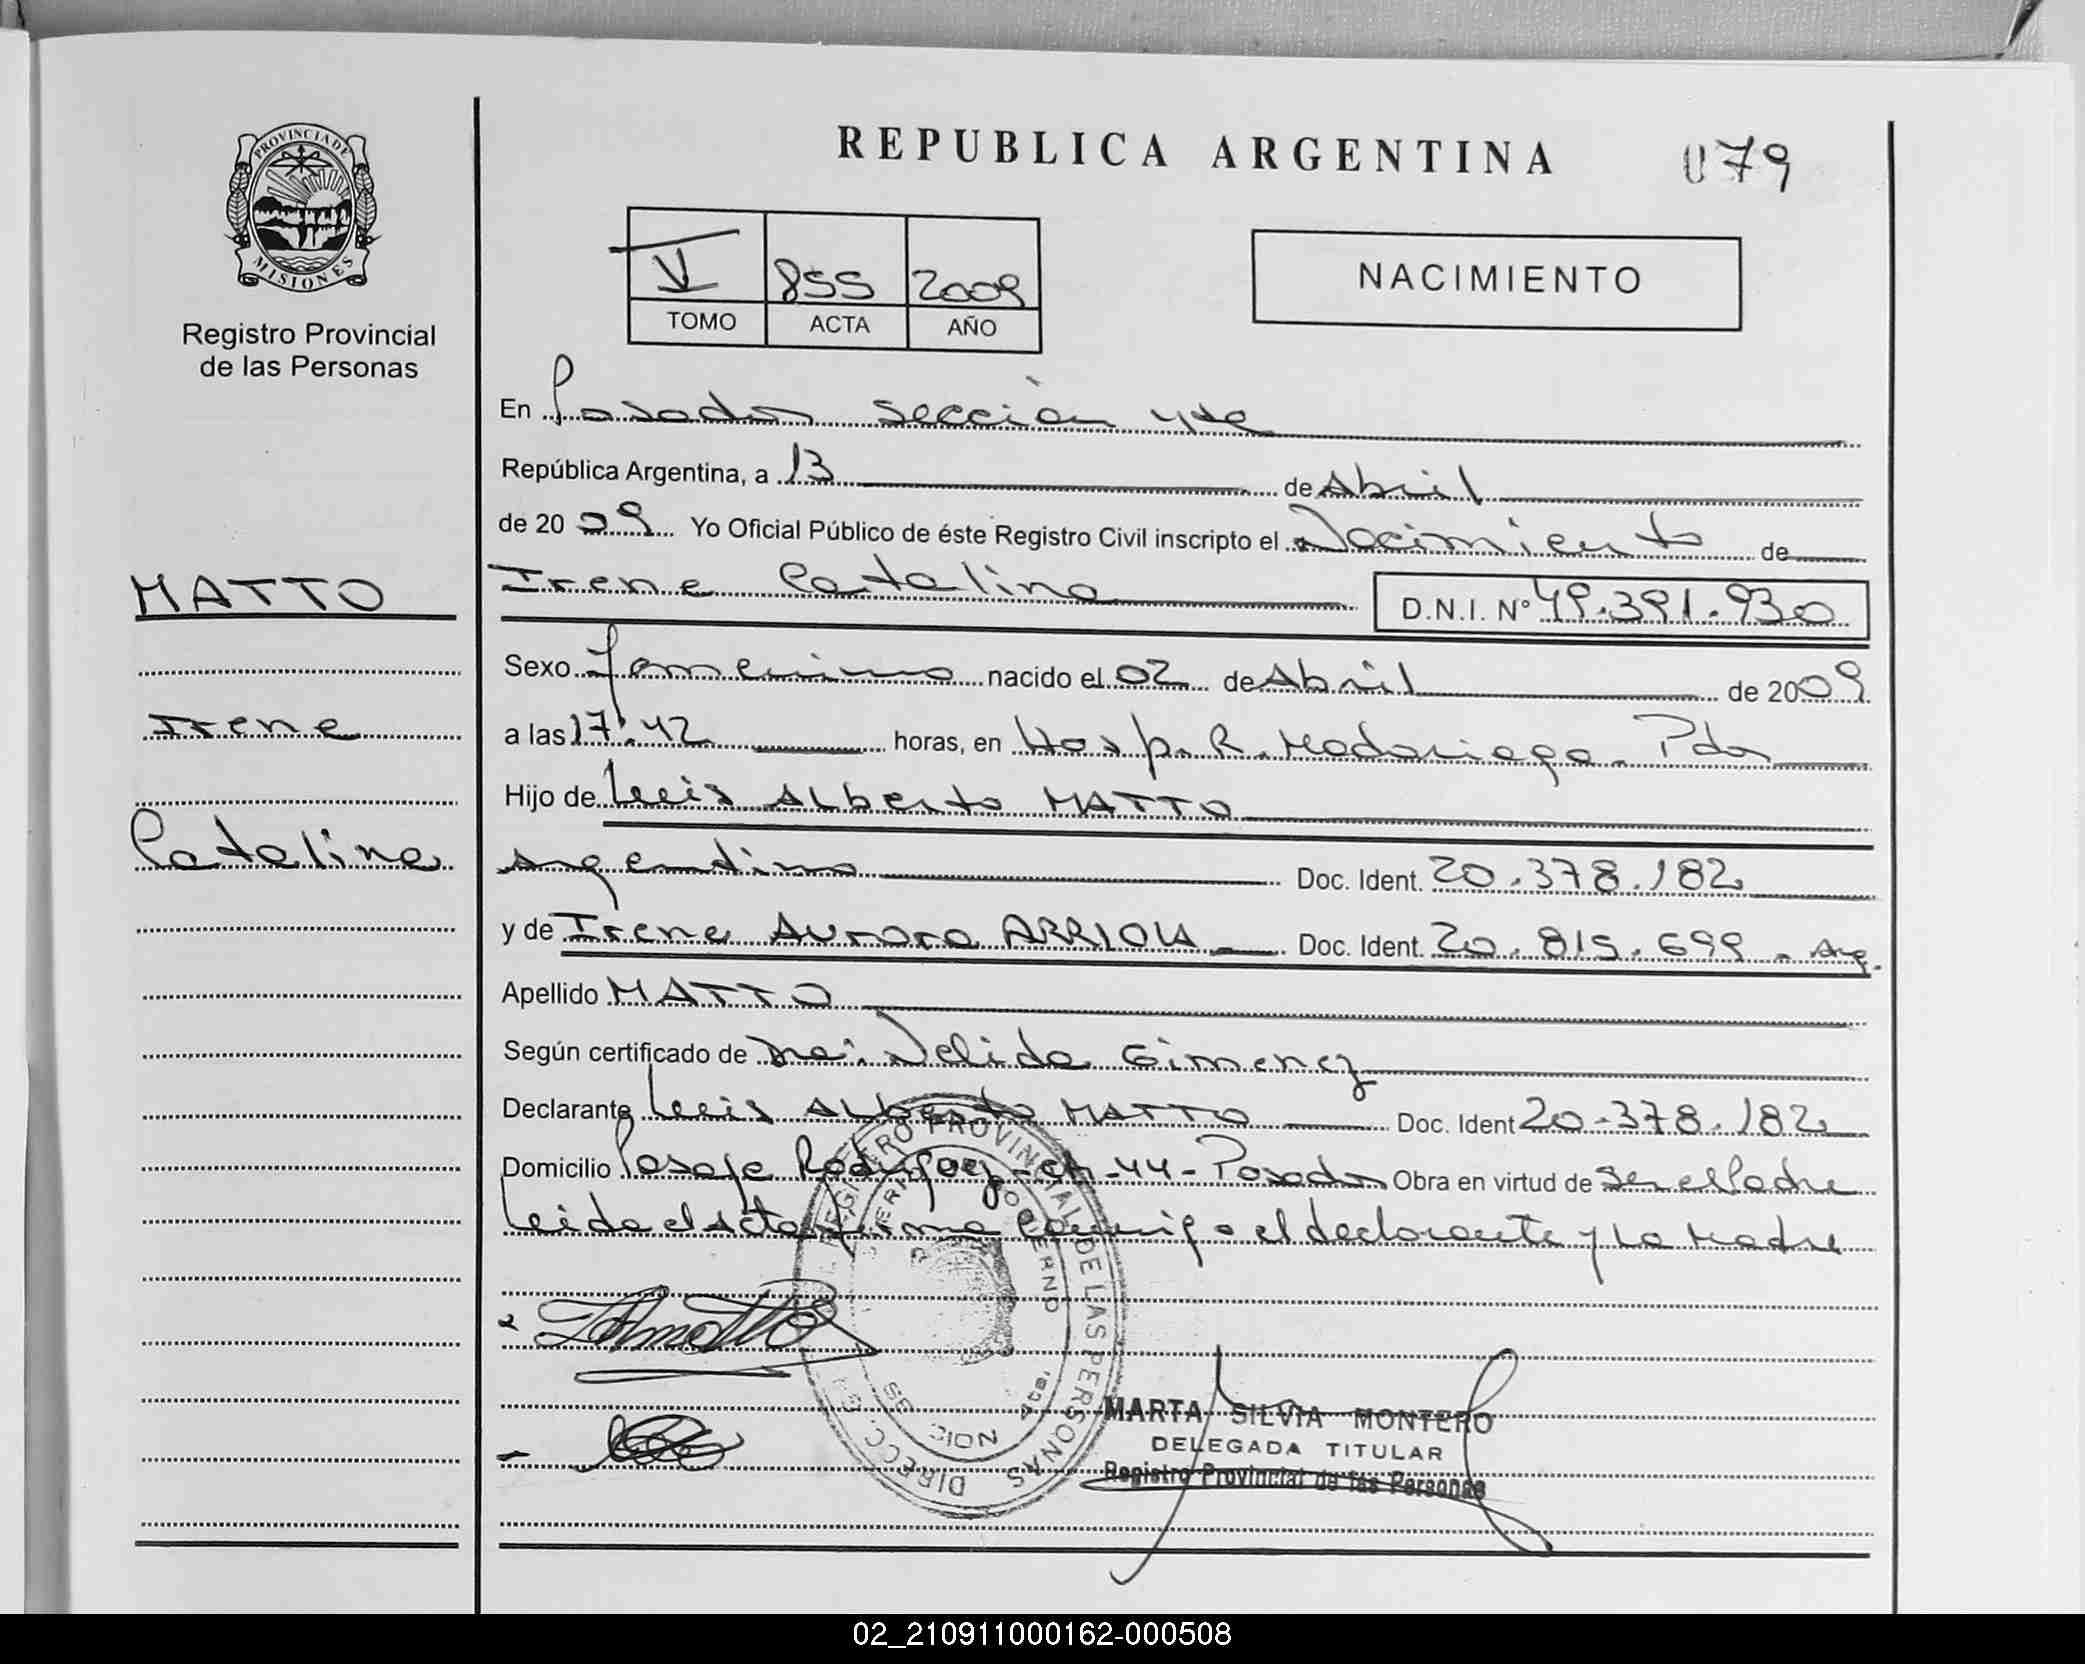 REPUBLICA ARGENTINA
079
PROVINCIA DE MISIONES
Registro Provincial
de las Personas
V 855 2009
TOMO ACTA AÑO
NACIMIENTO
En Posadas sección 4ta
República Argentina, a 13 de Abril
de 2009 Yo Oficial Público de éste Registro Civil inscripto el Nacimiento de
MATTO
Irene Catalina D.N.I. Nº 49.391.930
Sexo Femenino nacido el 02 de Abril de 2009
Irene
a las 17:42 horas, en Hosp. R. Madariaga - Pdas
Hijo de Luis Alberto MATTO
Catalina
Argentino Doc. Ident. 20.378.182
y de Irene Aurora ARRIOLA Doc. Ident. 20.815.699 - Arg.
Apellido MATTO
Según certificado de Dra: Nelida Gimenez
Declarante Luis Alberto MATTO Doc. Ident 20.378.182
Domicilio Pasaje Rodriguez - 44 - Posadas Obra en virtud de ser el Padre
Leida el Acta firma conmigo el declarante y la Madre
DIRECC. REGISTRO PROVINCIAL DE LAS PERSONAS
MARTA SILVIA MONTERO
DELEGADA TITULAR
Registro Provincial de las Personas
02_210911000162-000508